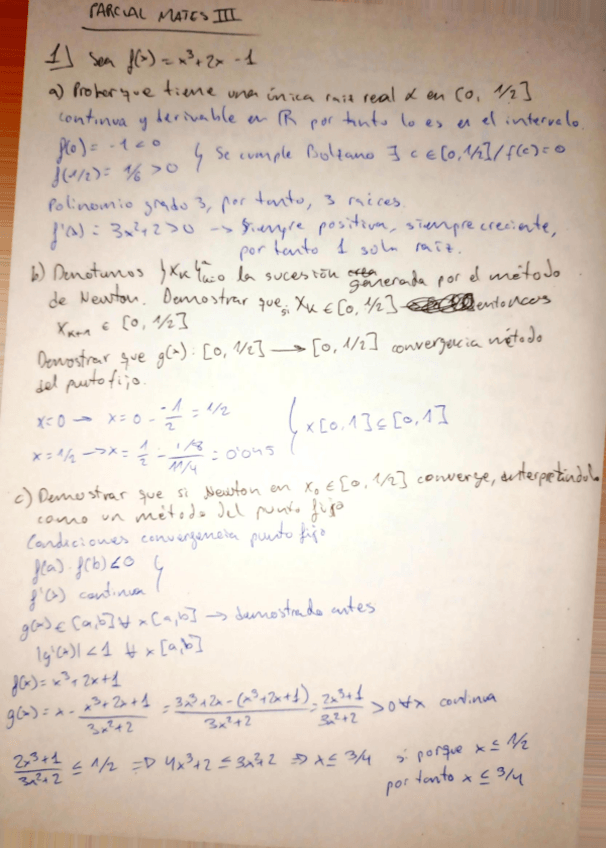 PARCIAL MATES III
1] Sea f(x) = x³+2x-1
a) Probar que tiene una única raiz real α en [0, 1/2]
continua y derivable en ℝ por tanto lo es en el intervalo.
f(0) = -1 < 0
f(1/2) = 1/8 > 0 } Se cumple Bolzano ∃ c ∈ [0,1/2] / f(c)=0
Polinomio grado 3, por tanto, 3 raices.
f'(x) = 3x²+2 > 0 → Siempre positiva, siempre creciente,
por tanto 1 sola raiz.
b) Denotamos {xₖ}ₖ₌₀^∞ la sucesión generada por el método
de Newton. Demostrar que si xₖ ∈ [0, 1/2] entonces
xₖ₊₁ ∈ [0, 1/2]
Demostrar que g(x): [0, 1/2] → [0, 1/2] convergencia método
del punto fijo.
x=0 → x = 0 - -1/2 = 1/2
x = 1/2 → x = 1/2 - 1/8 / 11/4 = 0'045 } x[0,1] ⊆ [0,1]
c) Demostrar que si Newton en x₀ ∈ [0, 1/2] converge, interpretándolo
como un método del punto fijo
Condiciones convergencia punto fijo
f(a) · f(b) < 0
f'(x) continua }
g(x) ∈ [a,b] ∀ x [a,b] → demostrado antes
|g'(x)| < 1 ∀ x [a,b]
f(x) = x³+2x+1
g(x) = x - x³+2x+1 / 3x²+2 = 3x³+2x-(x³+2x+1) / 3x²+2 = 2x³+1 / 3x²+2 > 0 ∀x continua
2x³+1 / 3x²+2 ≤ 1/2 ⇒ 4x³+2 ≤ 3x²+2 ⇒ x ≤ 3/4 si porque x ≤ 1/2
por tanto x ≤ 3/4